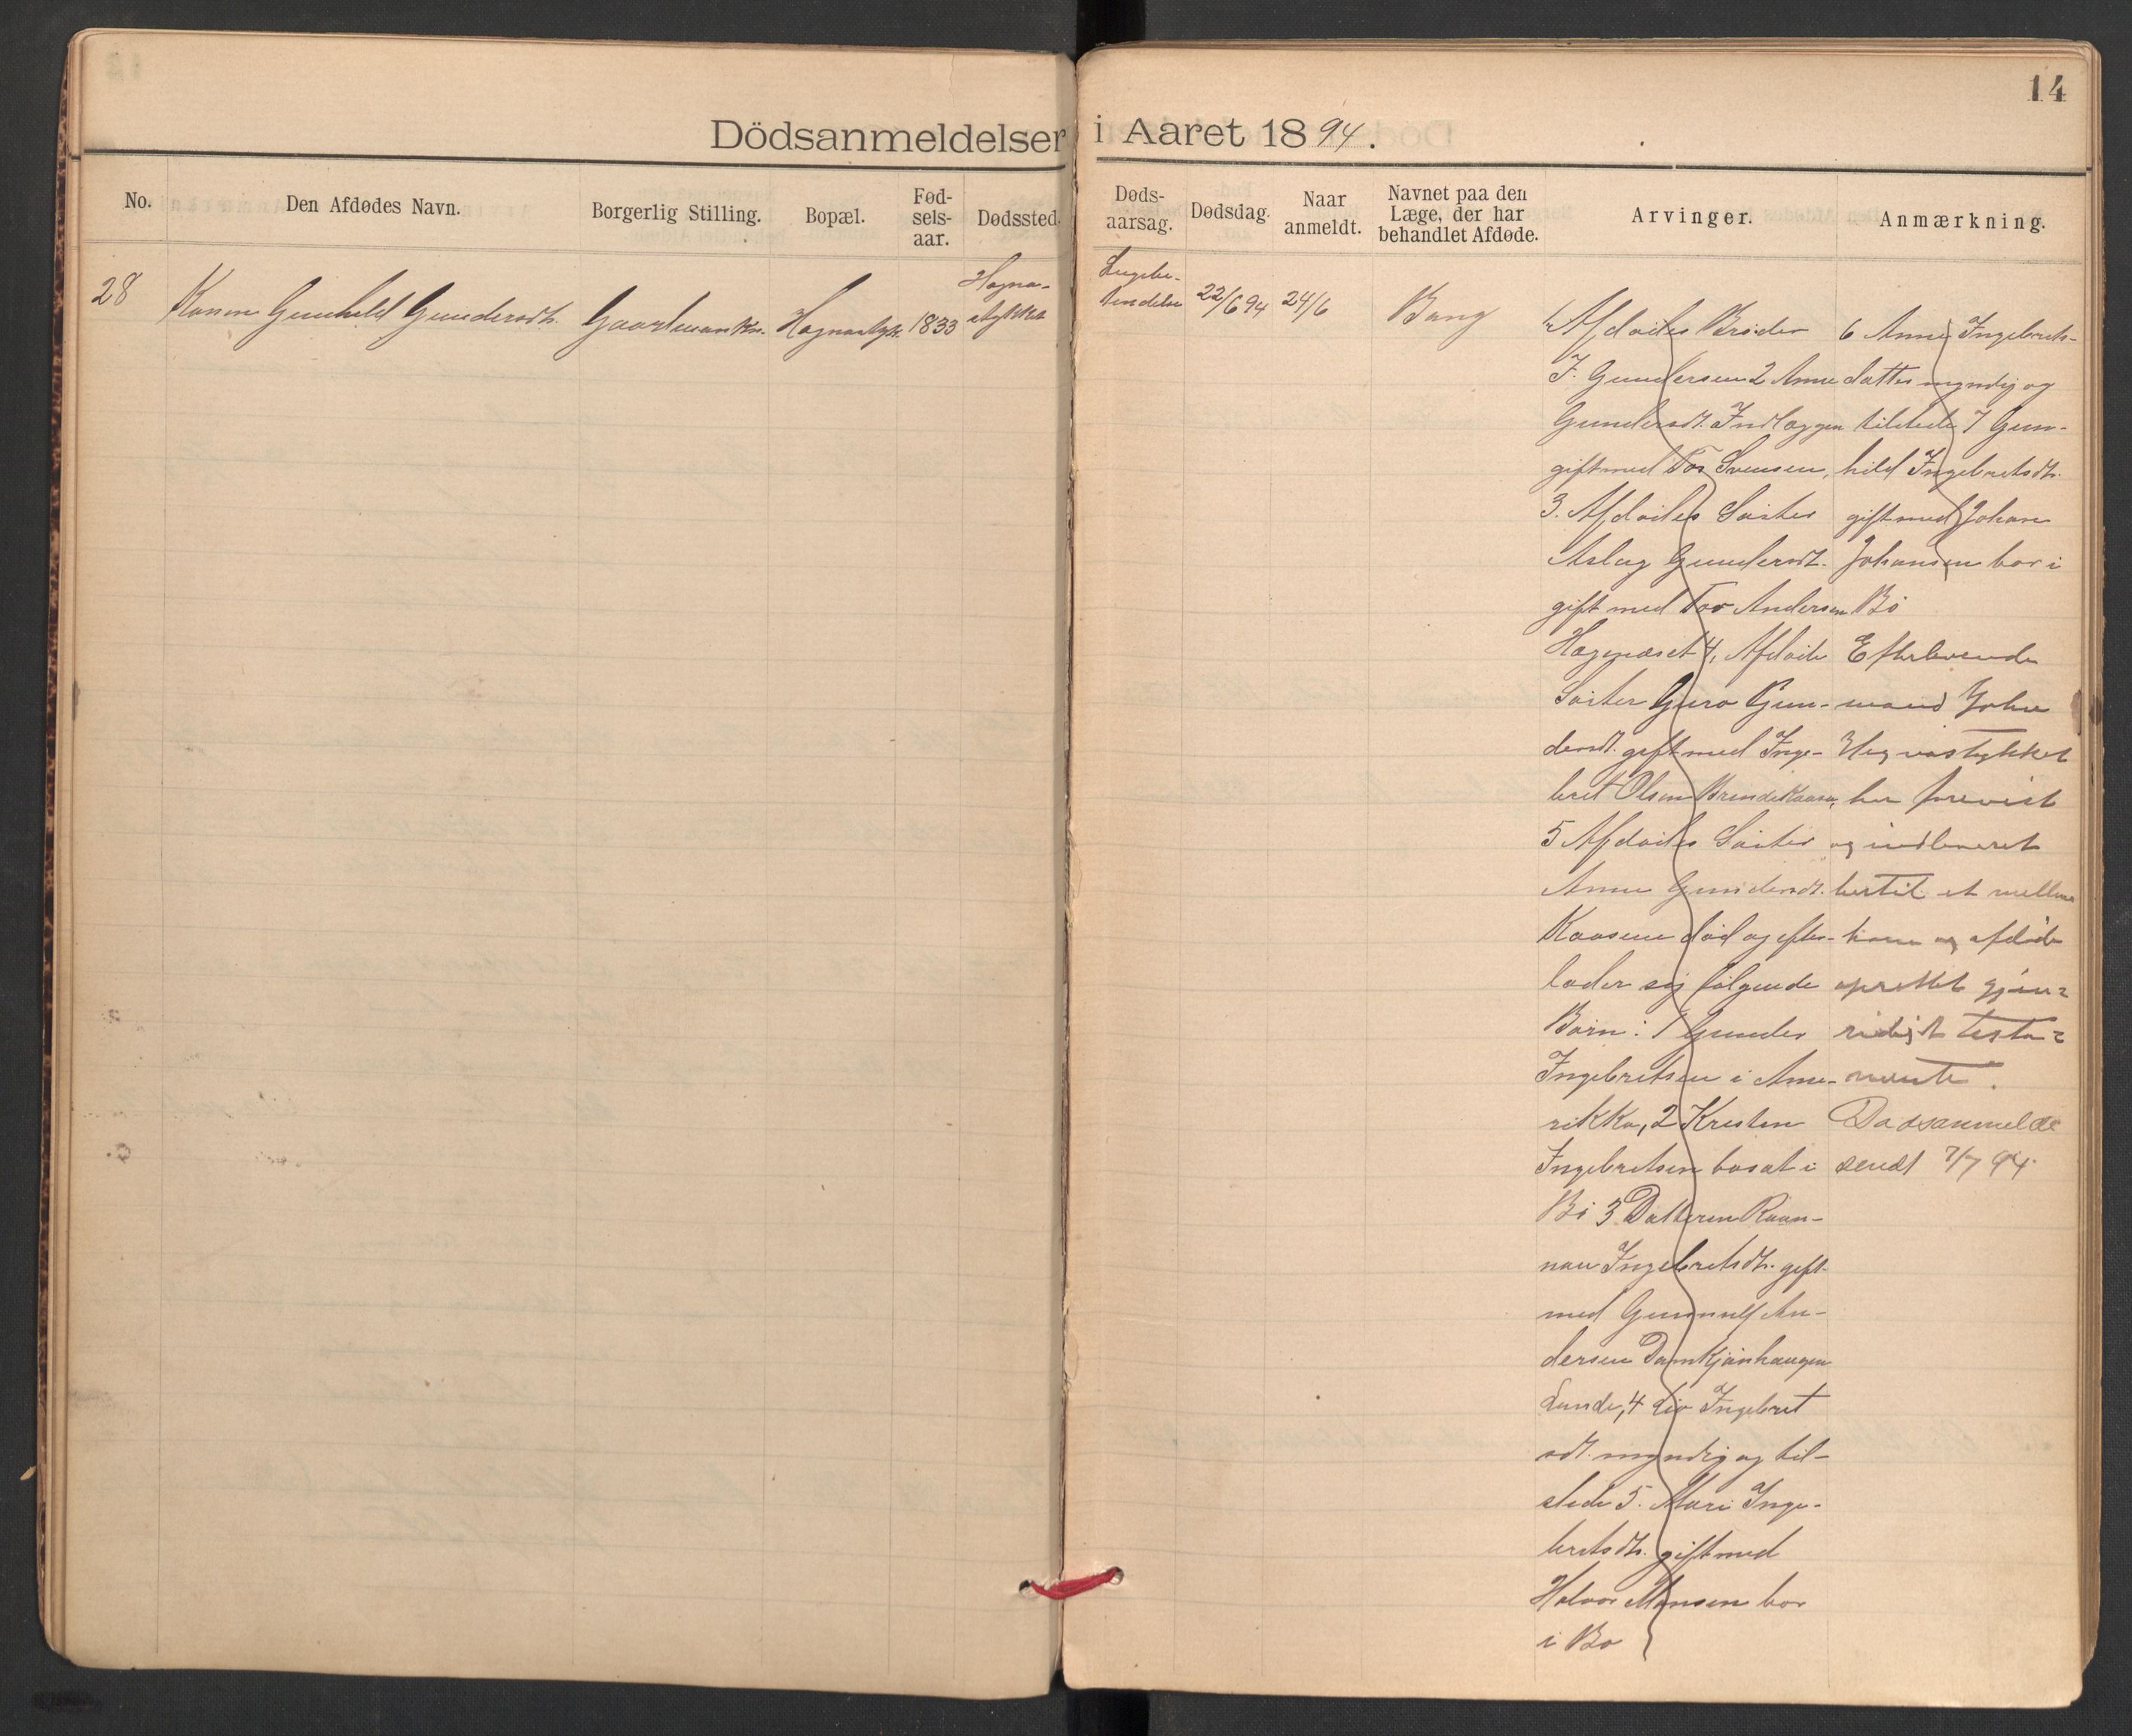 14
Dödsanmeldelser i Aaret 1894.
No.
Den Afdødes Navn.
Borgerlig Stilling.
Bopæl.
Fød-
sels-
aar.
Dødssted.
Døds-
aarsag.
Dødsdag.
Naar
anmeldt.
Navnet paa den
Læge, der har
behandlet Afdøde.
Arvinger.
Anmærkning.
28
Konen Gunhild Gundersdt.
Gaardmankn.
1833
Hagna-
stykket
22/6 94
24/6
Bang
1. Afdødes Broder
J. Gundersen 2 Anne
Gundersdt. Indlæggen
gift med Tor Svensen,
3. Afdødes Søster
Aslag Gundersdt.
gift med Tor Andersen
4, Afdøde
Søster Guro Gun-
dersdt. gift med Inge-
bret Olsen
5 Afdødes Søster
Anne Gundersdt.
Kaasene død og efter-
lader sig følgende
Børn: 1 Gunder
Ingebretsen i Ame-
rikka, 2 Kresten
Ingebretsen bosat i
Bø 3. Datteren Raan-
nau Ingebretsdt. gift
med Gunnulf An-
dersen Damkjønhaugen
Lunde, 4 Liv Ingebret
sdt. myndig og til-
stede 5. Mari Inge-
bretsdt. gift med
Halvor Hansen bor
i Bo
6 Anne Ingebrets-
datter myndig og
tilstede 7 Gun-
hild Ingebretsdt.
gift med Johan
Johansen bor i
Bø
Efterlevende
mand John
Hagnastykket
har forevist
og indleveret
hertil et mellem
ham og afdøde
oprettet gjen-
sidigt testa-
mente.
Dødsanmeldelse
sendt 7/7 94